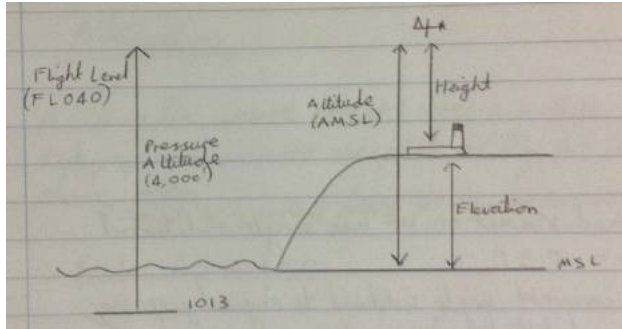 Flight Level
(FL040)
Pressure
Altitude
(4,000')
Altitude
(AMSL)
Height
Elevation
MSL
1013